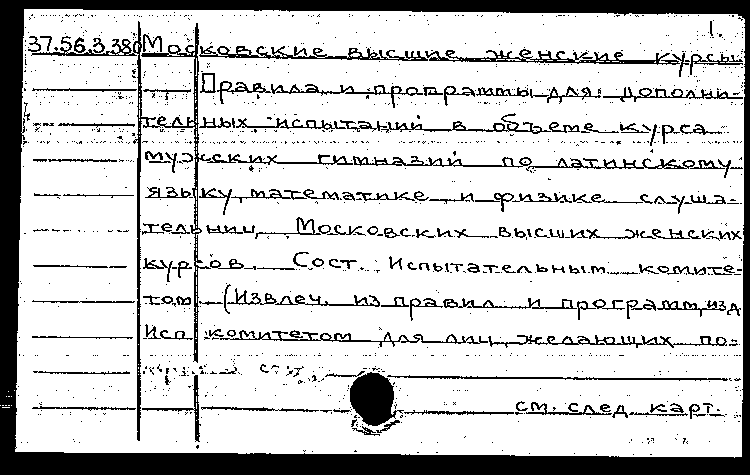 1.
37.56.3.380 Московские высшие женские курсы
Правила и программы для дополни-
тельных испытаний в объеме курса
мужских гимназий по латинскому
языку, математике и физике слуша-
тельниц Московских высших женских
курсов. Сост. Испытательным комите-
том. (Извлеч. из правил и программ, изд
Исп комитетом для лиц, желающих по-
см. след. карт.